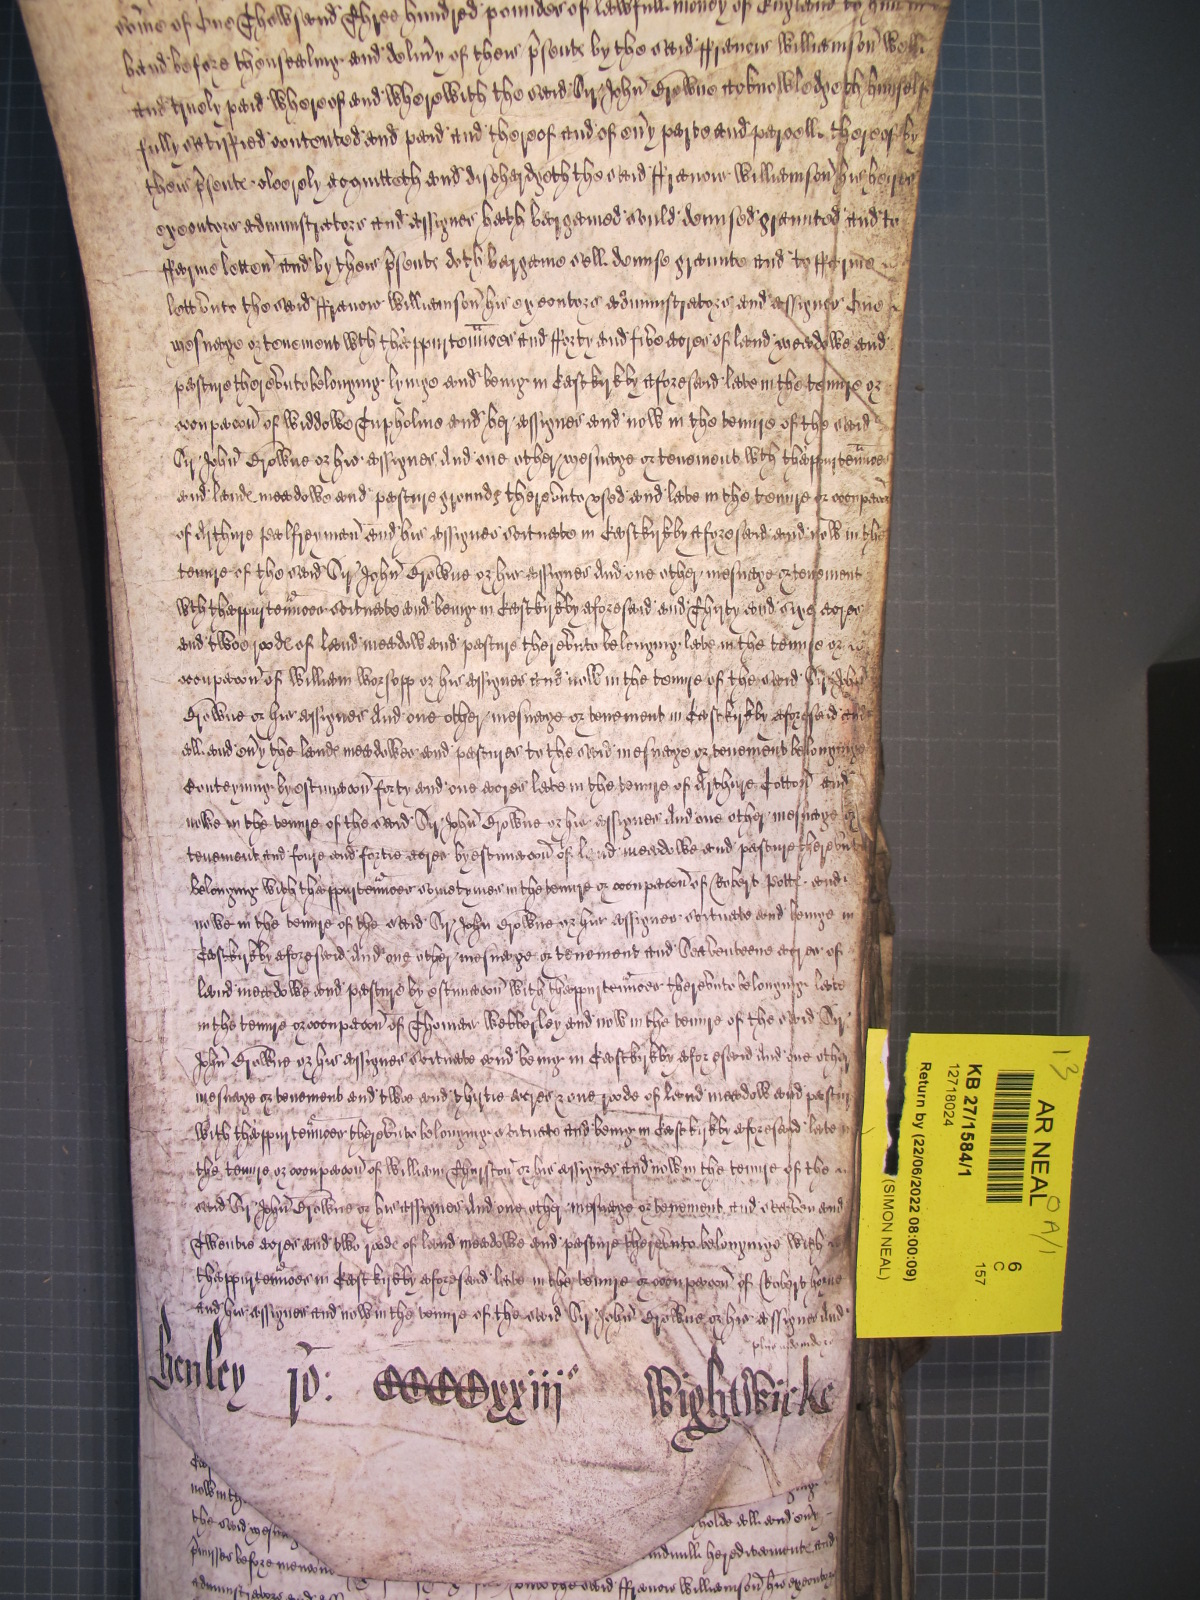 some of One Thowsand Three hundred poundes of lawfull money of England to him in
hand before thensealing and deliuy of theis psente by the said ffrancis Williamson well
and truely paid whereof and wherewith the said Sir John Crowne acknowledgeth himself
fully satisfied contented and paid and thereof and of euy parte and parcell thereof by
theis psente cleerely acquitteth and dischardgeth the said ffrancis Williamson his heires
executors administrators and assignes hath bargained sould demised graunted and to
ffarme letten and by theis psente doth bargaine sell demise graunte and to ffarme
lett vnto the said ffrancis Williamson his executors administrators and assignes One
mesuage or tenement wth thappurtennces and fforty and five acres of land meadowe and
pasture therevnto belonging lyinge and being in Eastkirkby aforesaid late in the tenure or
occupacon of widdowe Cupholme and her assignes and now in the tenure of the said
Sir John Crowne or his assignes And one other mesuage or tenement wth thappurtennces
and lande meadowe and pasture grounds therevnto vsed and late in the tenure or occupacon
of Arthure Palfreyman and his assignes scituate in Eastkirkby aforesaid and now in the
tenure of the said Sir John Crowne or his assignes And one other mesuage or tenement
wth thappurtennces scituate and being in Eastkirkby aforesaid and Thirty and sixe acres
and twoe roode of land meadow and pasture therevnto belonging late in the tenure or
occupacon of William Worsopp or his assignes and now in the tenure of the said Sir John
Crowne or his assignes And one other mesuage or tenement in Eastkirkby aforesaid and
all and euy the lande meadowes and pastures to the said mesuage or tenement belonginge
Conteyning by estimacon forty and one acres late in the tenure of Arthure Cotton and
nowe in the tenure of the said Sir John Crowne or his assignes And one other mesuage or
tenement and foure and fortie acres by estimacon of land meadowe and pasture therevnto
belonging with thappurtennces sometymes in the tenure or occupacon of Robert Potte and
nowe in the tenure of the said Sir John Crowne or his assignes scituate and beinge in
Eastkirkby aforesaid And one other mesuage or tenement and Seaventeene acres of
land meadowe and pasture by estimacon with thappurtennces therevnto belonging late
in the tenure or occupacon of Thomas Webberley and now in the tenure of the said Sir
John Crowne or his assignes scituate and being in Eastkirkby aforesaid And one other
mesuage or tenement and twoe and thirtie acres & one roode of land meadow and pasture
with thappurtennces therevnto belonging scituate and being in Eastkirkby aforesaid late in
the tenure or occupacon of William Thurston or his assignes and now in the tenure of the
said Sir John Crowne or his assignes And one other mesuage or tenement and seaven and
Twentie acres and two roode of land meadowe and pasture therevnto belonginge with
thappurtennces in Eastkirkby aforesaid late in the tenure or occupacon of Robert horne
and his assignes and now in the tenure of the said Sir John Crowne or his assignes And
henley ro: CCCCxxiii° Wightwicke
now in th
the said mesu
holde all and euy
pmisses before mencon
windmill hereditament and
administrators and
vnto the said ffrancis Williamson his executors
AR NEAL
KB 27/1584/1
12718024
6
C
157
Return by (22/06/2022 08:00:09)
(SIMON NEAL)
13